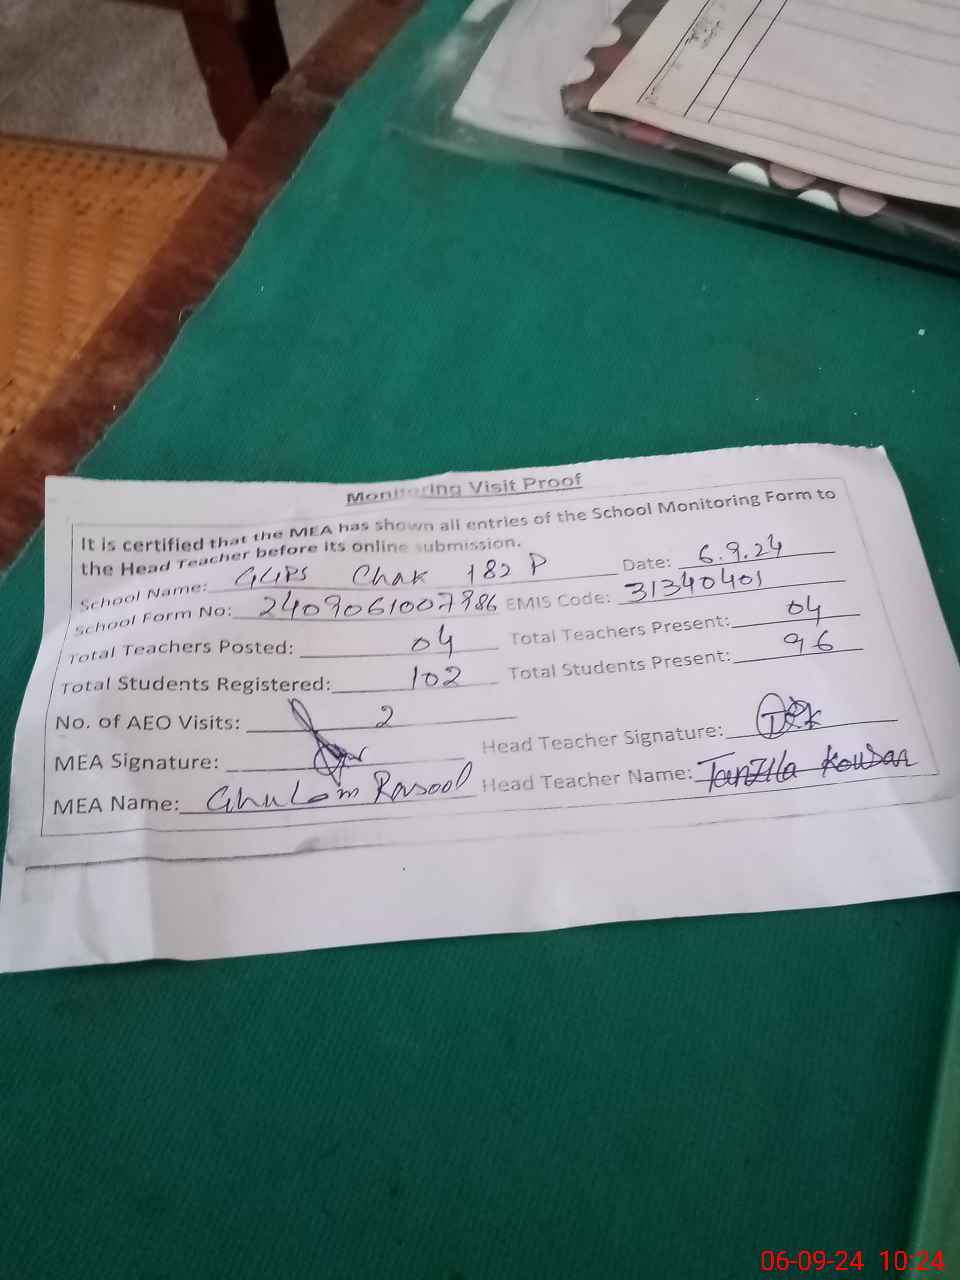 Monitoring Visit Proof
It is certified that the MEA has shown all entries of the School Monitoring Form to
the Head Teacher before its online submission.
School Name: GGPS Chak 182 P Date: 6.9.24
School Form No: 2409061007986 EMIS Code: 31340401
Total Teachers Posted: 04 Total Teachers Present: 04
Total Students Registered: 102 Total Students Present: 96
No. of AEO Visits: 2
MEA Signature: Head Teacher Signature:
MEA Name: Ghulam Rasool Head Teacher Name: Tanzila Kousar
06-09-24 10:24